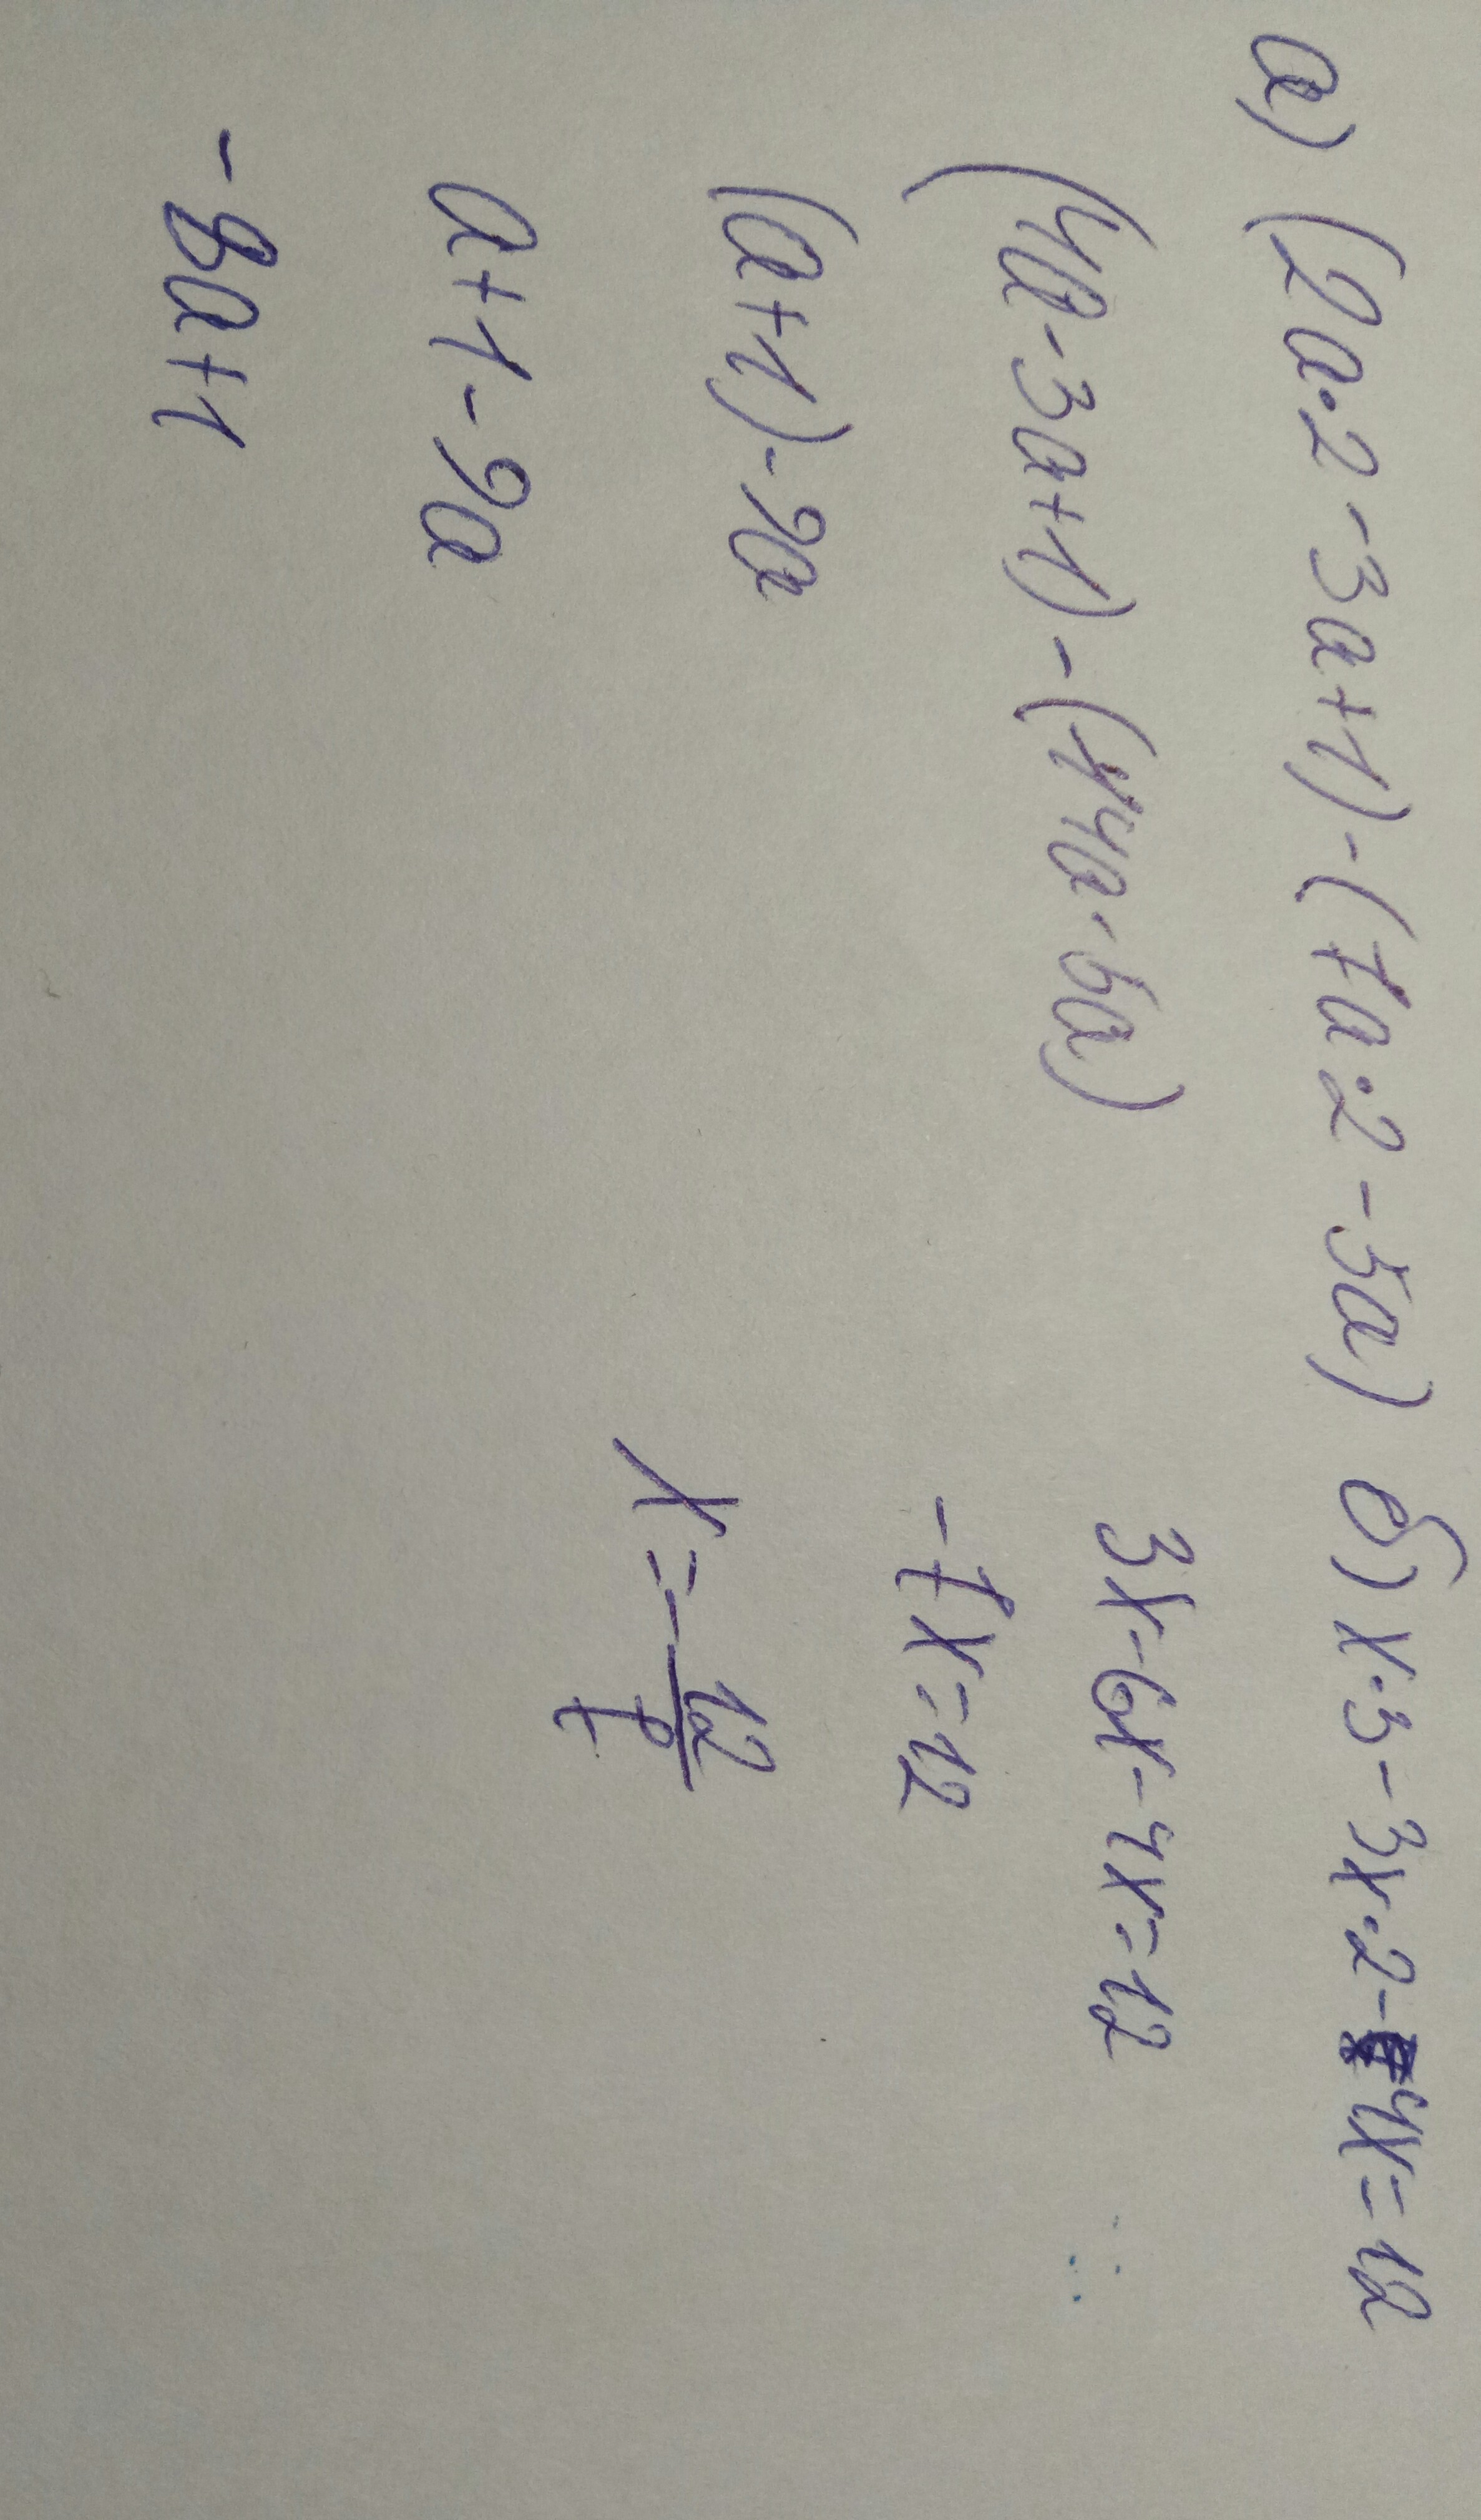 а) (2a·2-3a+1)-(7a·2-5a)
(4a-3a+1)-(14a-5a)
(a+1)-9a
a+1-9a
-8a+1
б) x·3-3x·2-4x=12
3x-6x-4x=12
-7x=12
x=-12/7